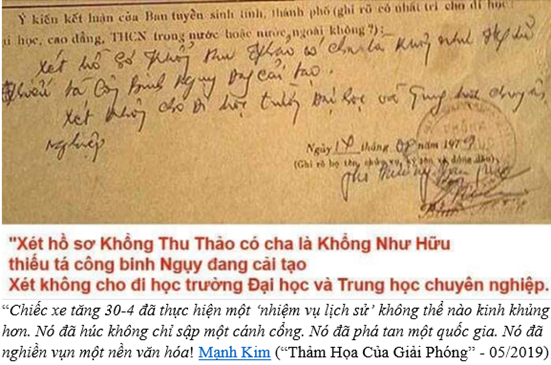 Ý kiến kết luận của Ban tuyển sinh tỉnh, thành phố (ghi rõ có nhất trí cho đi học
đại học, cao đẳng, THCN trong nước hoặc nước ngoài không?):
Xét hồ sơ Khổng Thu Thảo có cha là Khổng Như Hữu
thiếu tá Công Binh Ngụy đang cải tạo.
Xét không cho đi học trường Đại học và Trung học chuyên
nghiệp
Ngày 14 tháng năm 1979
(Ghi rõ họ tên, chức vụ, ký tên và đóng dấu)
"Xét hồ sơ Khổng Thu Thảo có cha là Khổng Như Hữu
thiếu tá công binh Ngụy đang cải tạo
Xét không cho đi học trường Đại học và Trung học chuyên nghiệp.
“Chiếc xe tăng 30-4 đã thực hiện một ‘nhiệm vụ lịch sử’ không thể nào kinh khủng
hơn. Nó đã húc không chỉ sập một cánh cổng. Nó đã phá tan một quốc gia. Nó đã
nghiền vụn một nền văn hóa! Mạnh Kim (“Thảm Họa Của Giải Phóng” - 05/2019)